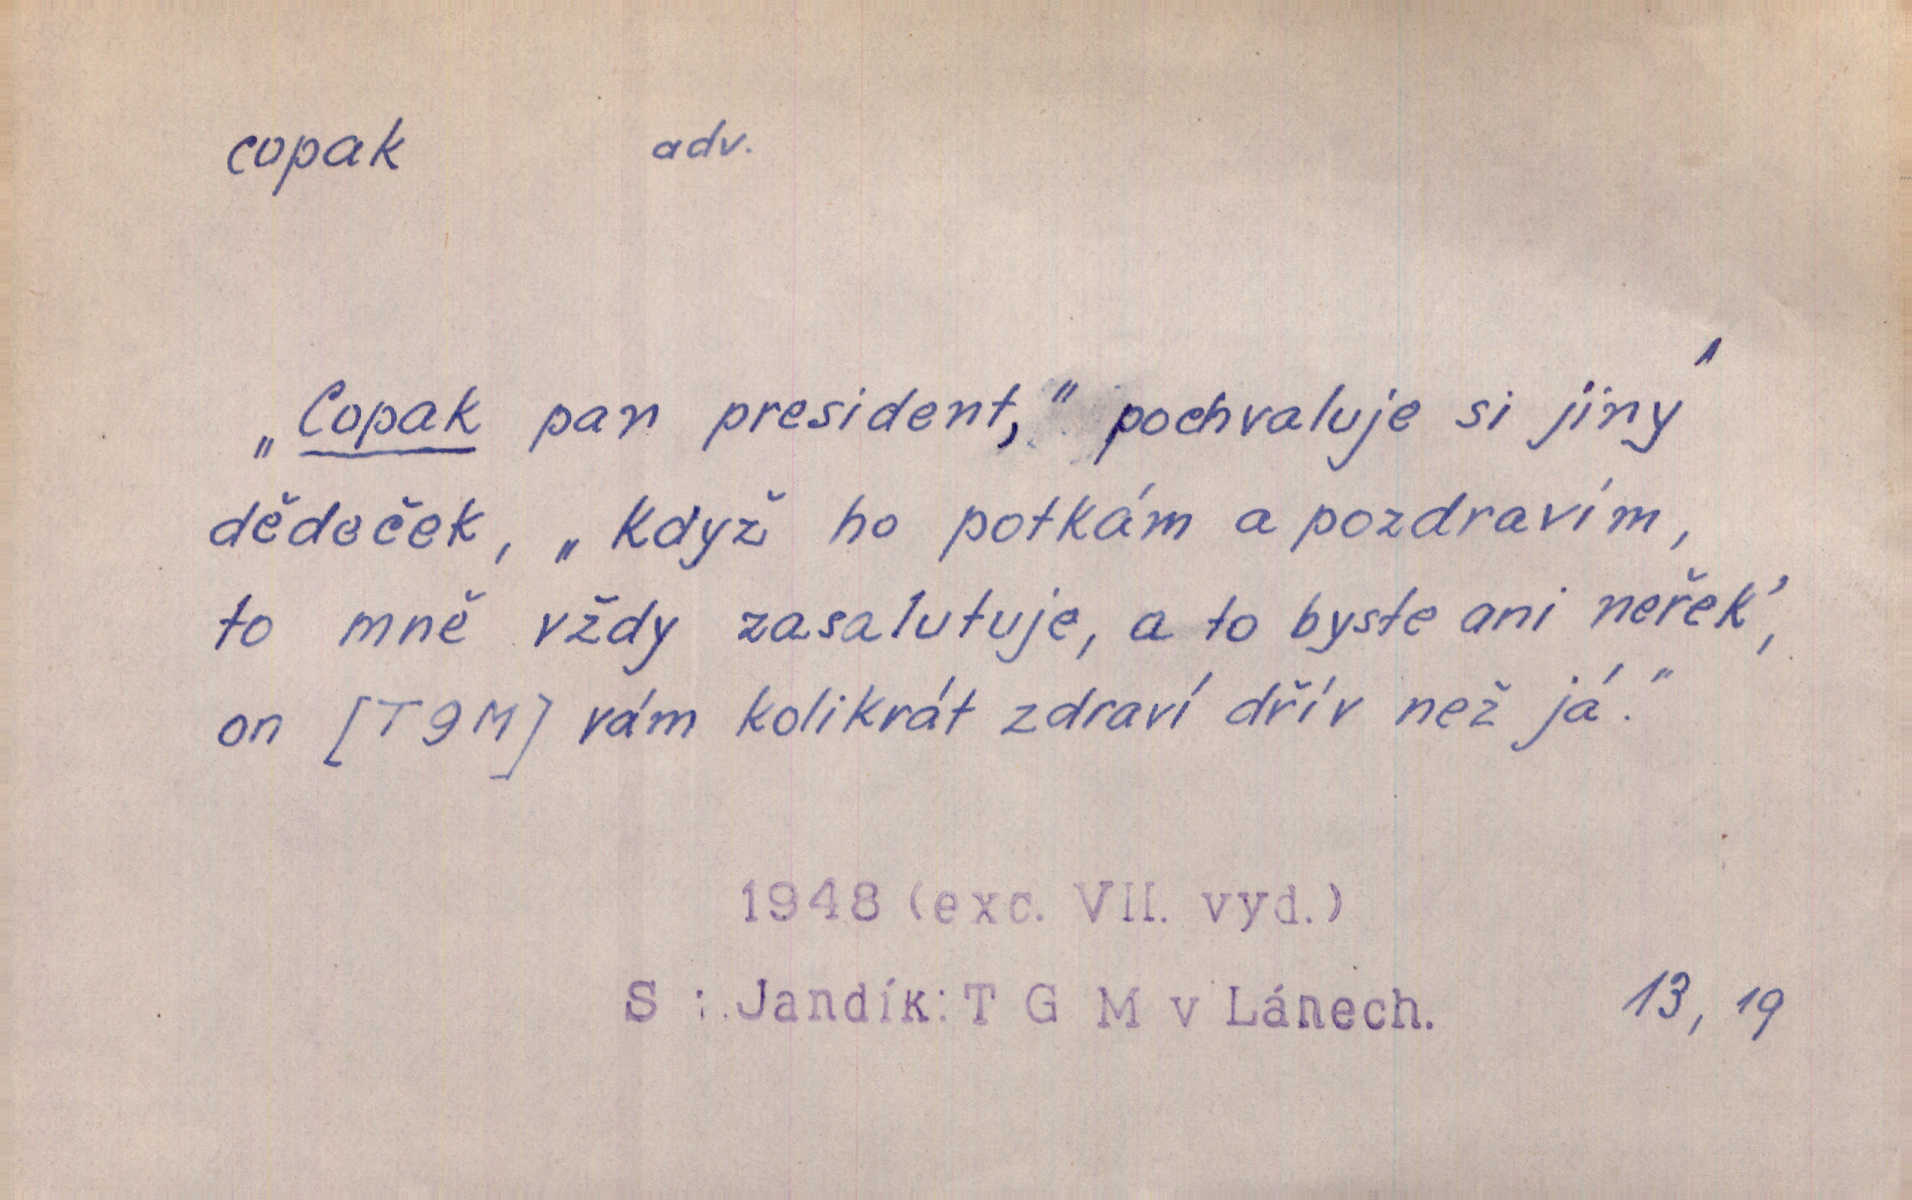 copak adv.
„Copak pan president,“ pochvaluje si jiný
dědeček, „když ho potkám a pozdravím,
to mně vždy zasalutuje, a to byste ani neřek’,
on [TGM] vám kolikrát zdraví dřív než já.“
1948 (exc. VII. vyd.)
S : Jandík: T G M v Lánech. 13, 19